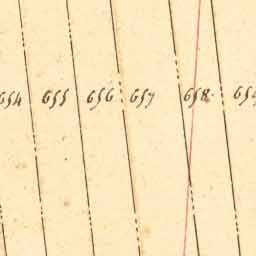 654 655 656 657 658. 659